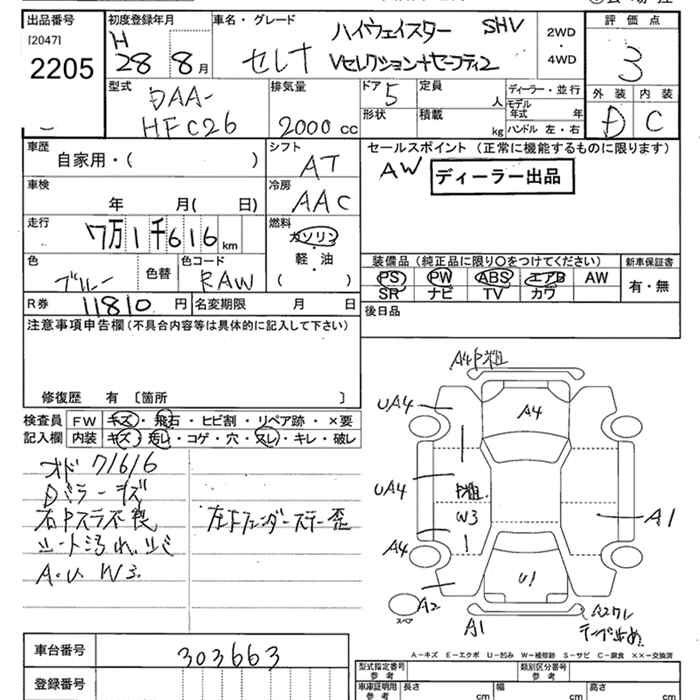 出品番号 初度登録年月 車名・グレード 評価点
[2047] H ハイウェイスター SHV 2WD
2205 28 8月 セレナ Vセレクション+セーフティ2 4WD 3
型式 排気量 ドア 定員 ディーラー・並行 外装 内装
DAA- 5 人 モデル年式 年
HFC26 2000cc 形状 積載 kg ハンドル 左・右 D C
車歴 シフト セールスポイント (正常に機能するものに限ります)
自家用・( ) AT AW ディーラー出品
車検 冷房
年 月( 日) AAC
走行 燃料
7万1千616km ガソリン
軽・油
( )
色 色替 色コード 装備品(純正品に限り○をつけてください) 新車保証書
ブルー RAW PS PW ABS エアB AW 有・無
SR ナビ TV カワ
R券 11810円 名変期限 月 日 後日品
注意事項申告欄(不具合内容等は具体的に記入して下さい)
修復歴 有 〔箇所 〕
検査員 FW キズ・飛石・ヒビ割・リペア跡・×要
記入欄 内装 キズ・汚レ・コゲ・穴・スレ・キレ・破レ
オド 71616
Dミラーキズ
シート汚れ
A.U W3
A4
UA4
A4
UA4
W3
A1
A4
U1
A2
スペア
A1
A2ワレ
A-キズ E-エクボ U-凹み W-補修跡 S-サビ C-腐食 ××-交換済
車台番号 303663
登録番号
型式指定番号 参考 類別区分番号 参考
車庫証明用 参考 長さ cm 幅 cm 高さ cm